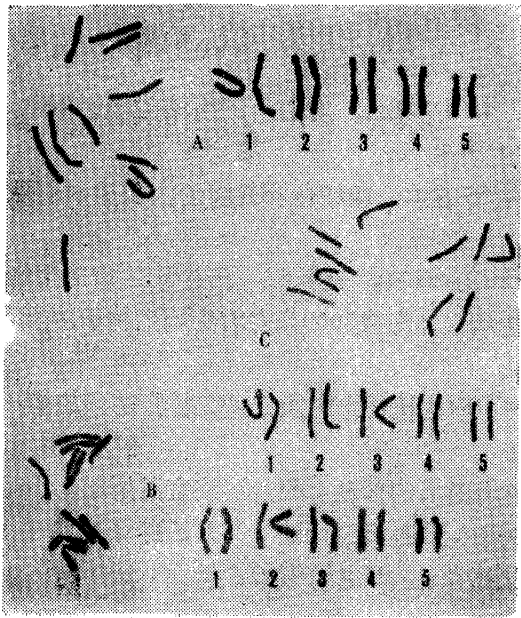 A 1 2 3 4 5
C
1 2 3 4 5
B
1 2 3 4 5